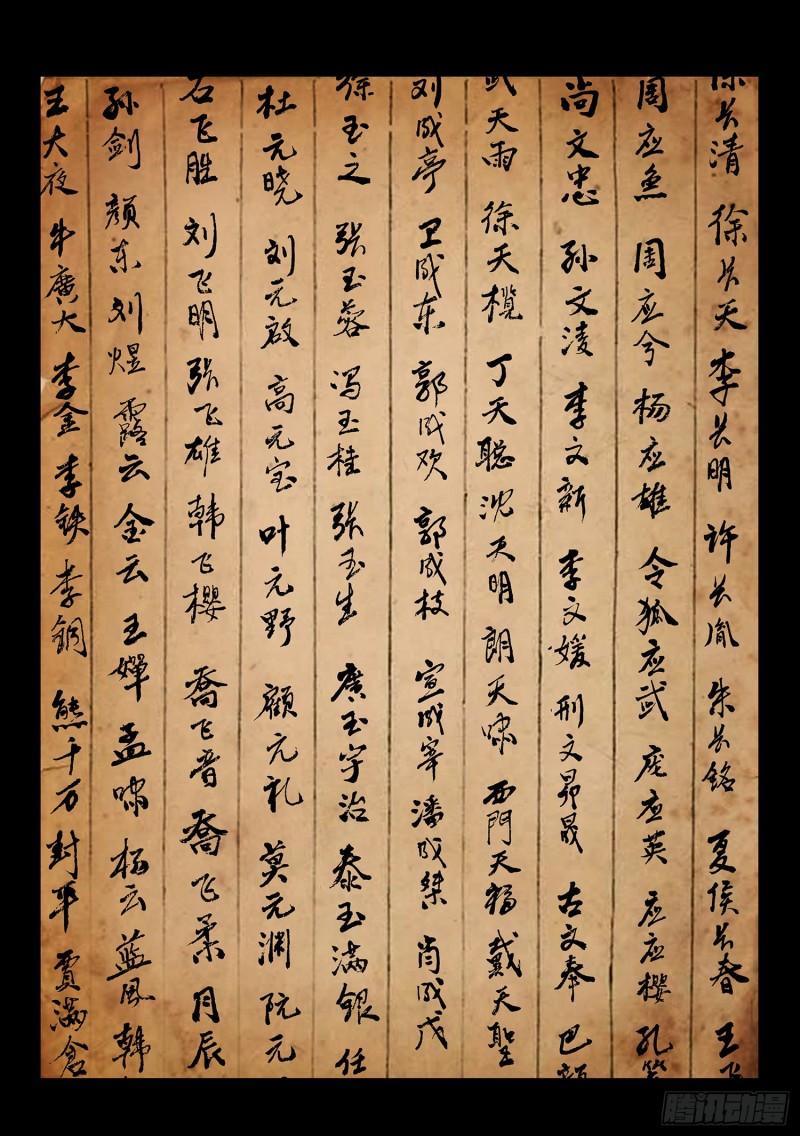 徐长清 徐长天 李长明 许长胤 朱长铭 夏侯长春 王
周应鱼 周应兮 杨应雄 令狐应武 庞应英 应应樱 孔
尚文忠 孙文凌 李文新 李文媛 刑文昴晟 古文奉 巴
武天雨 徐天榄 丁天聪 沈天明 朗天啸 西門天福 戴天聖
刘成亭 卫成东 郭成欢 郭成枝 宣成宰 潘成桀 肖成戊
徐玉之 張玉蓉 冯玉桂 張玉生 廣玉宇治 泰玉滿銀 任
杜元晓 刘元啟 高元宝 叶元野 顧元礼 莫元渊 阮元
石飞胜 刘飞明 張飞雄 韩飞樱 喬飞音 喬飞柔 月辰
孙剑 颜东 刘煜 露云 金云 王婵 孟啸 杨云 蓝风 韩
王大夜 牛廣大 李金 李铁 李铜 熊千万 封平 賈滿倉
腾讯动漫